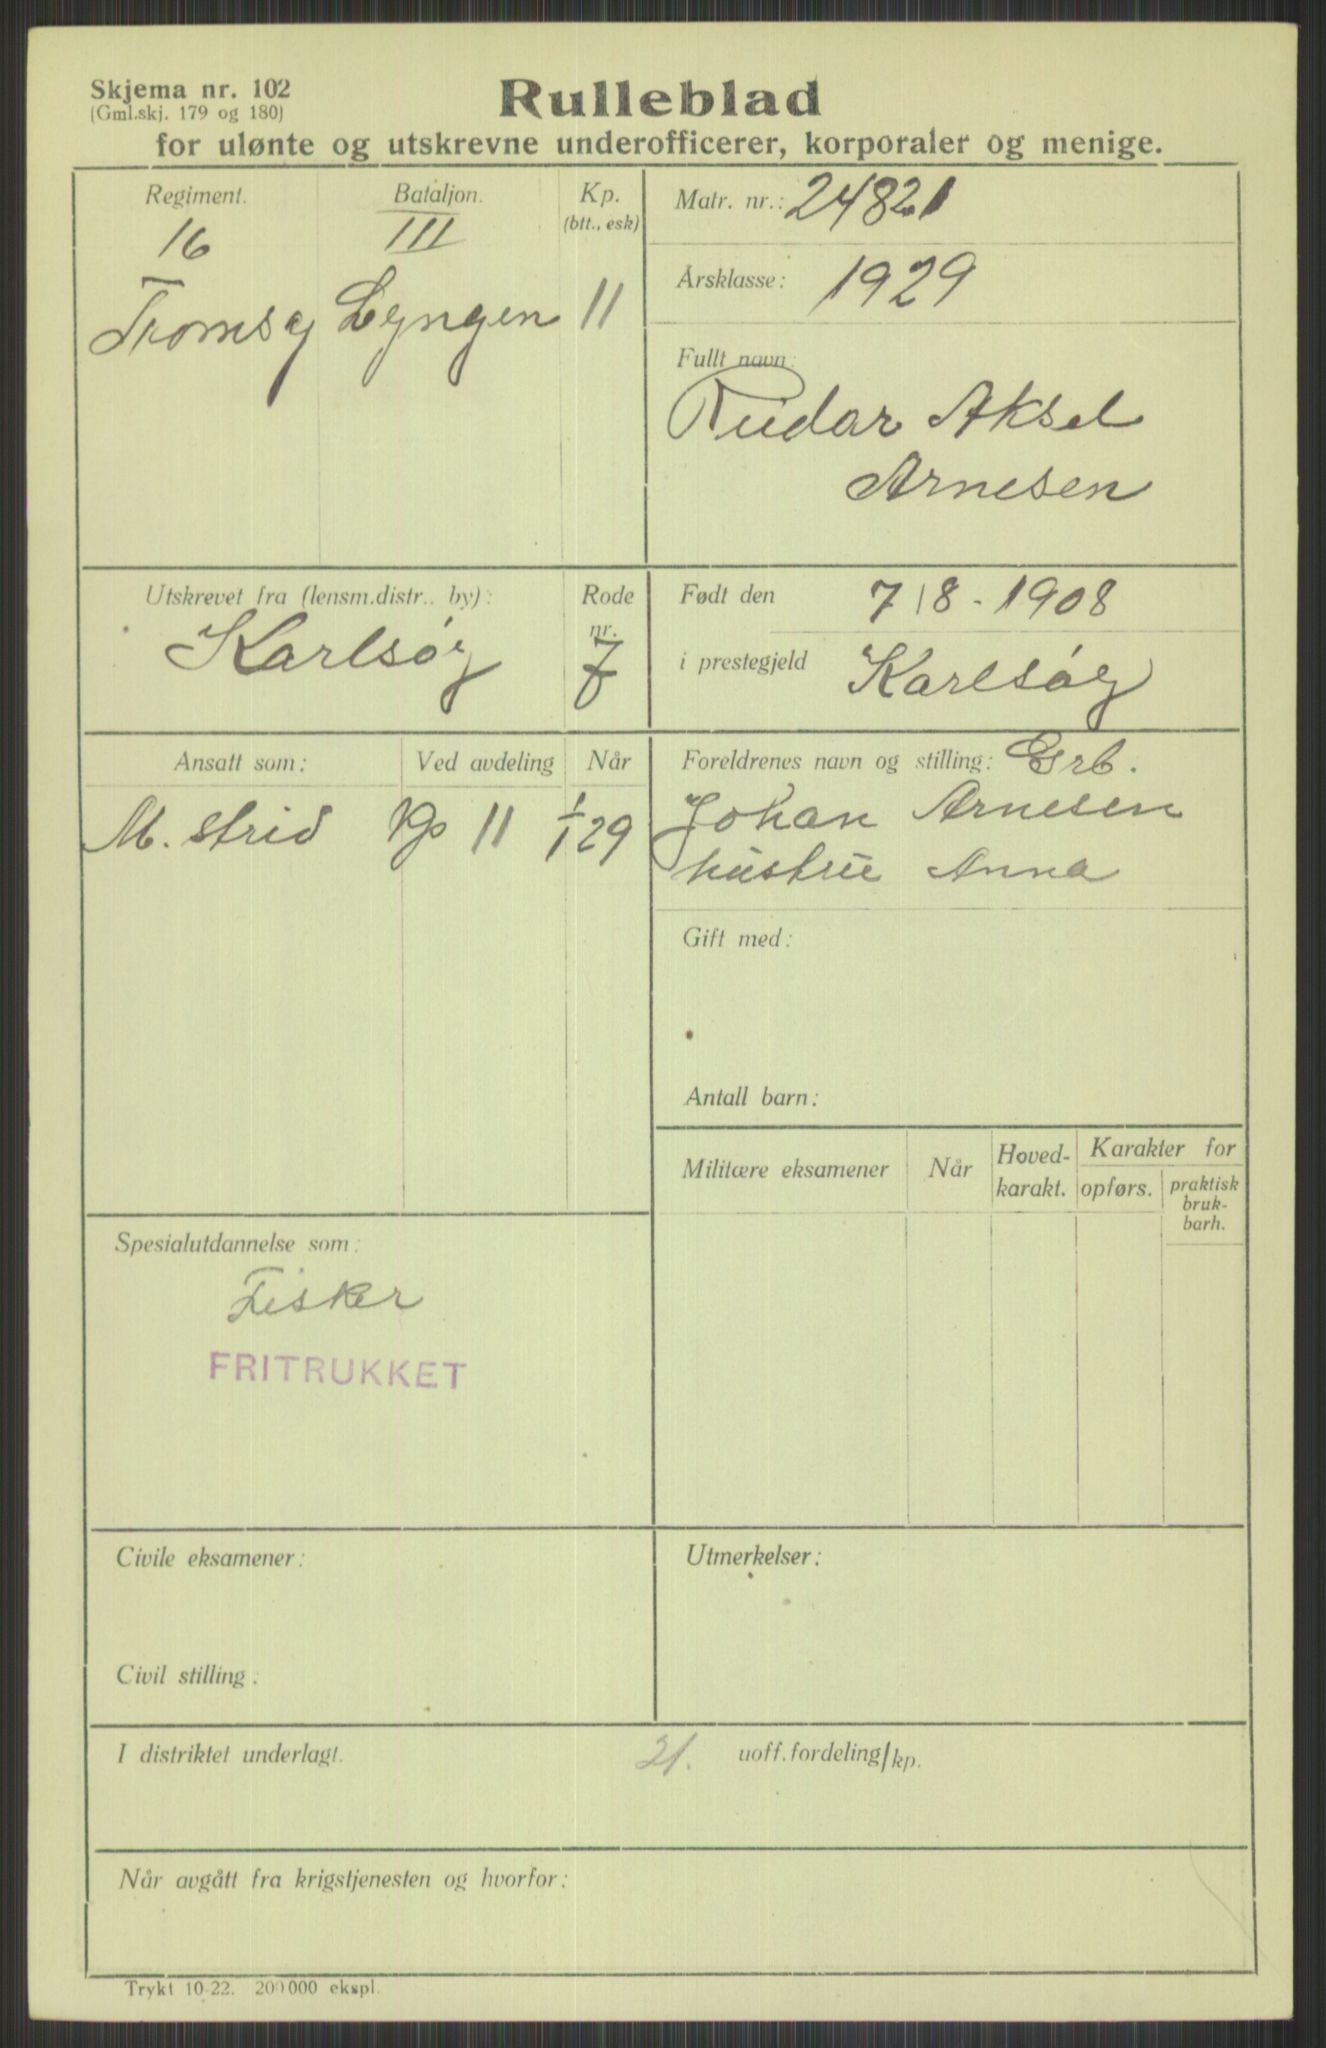 Skjema nr. 102
(Gml.skj. 179 og 180)
Rulleblad
for ulønte og utskrevne underofficerer, korporaler og menige.
Regiment. Bataljon. Kp.
(btt., esk)
16 III
Tromsøy Lyngen 11
Matr. nr.: 24821
Årsklasse: 1929
Fullt navn:
Rudar Aksel
Arnesen
Utskrevet fra (lensm.distr.. by): Rode
nr.
Karlsøy 7
Født den 7/8 - 1908
i prestegjeld Karlsøy
Ansatt som: Ved avdeling Når
M. strid Kp 11 1/1 29
Foreldrenes navn og stilling: Grb.
Johan Arnesen
hustru Anna
Gift med:
Antall barn:
Militære eksamener Når Hoved-
karakt. Karakter for
opførs. praktisk
bruk-
barh.
Spesialutdannelse som:
Fisker
FRITRUKKET
Civile eksamener:
Utmerkelser:
Civil stilling:
I distriktet underlagt. 21. uoff.fordeling/kp.
Når avgått fra krigstjenesten og hvorfor:
Trykt 10-22. 200000 ekspl.